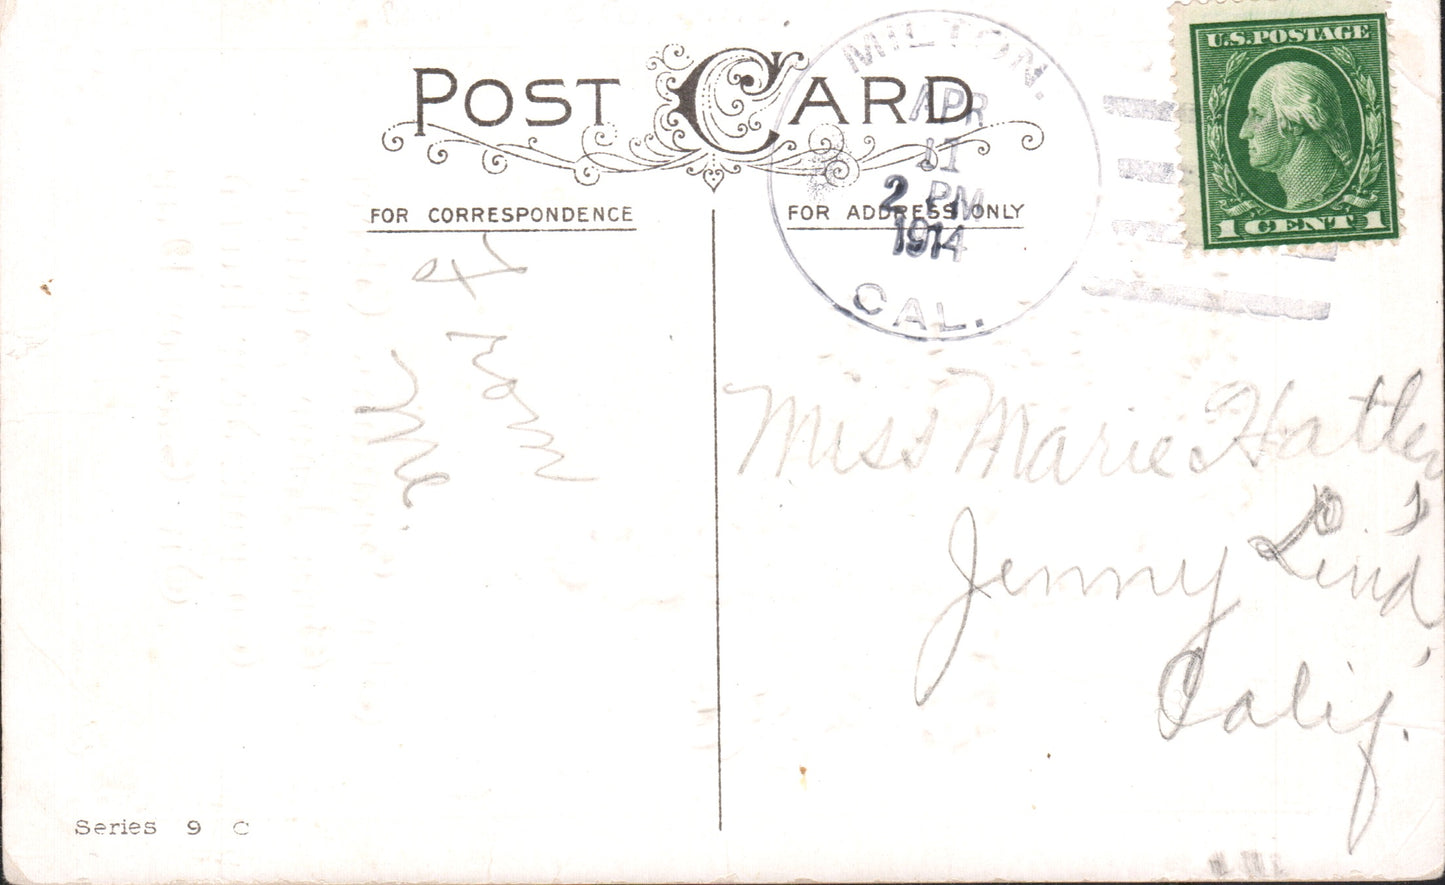 POST CARD
FOR CORRESPONDENCE
FOR ADDRESS ONLY
MILTON.
APR
11
2 PM
1914
CAL.
U.S. POSTAGE
1 CENT 1
From
Me.
Miss Marie Hatler
Jenny Lind
Calif.
Series 9 C